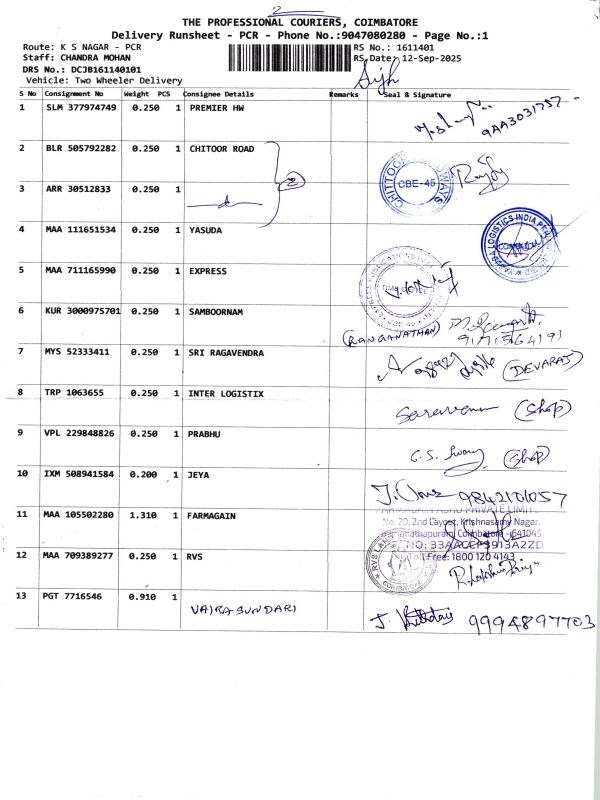 2
THE PROFESSIONAL COURIERS, COIMBATORE
Delivery Runsheet - PCR - Phone No.:9047080280 - Page No.:1
Route: K S NAGAR - PCR RS No.: 1611401
Staff: CHANDRA MOHAN RS Date: 12-Sep-2025
DRS No.: DCJB161140101
Vehicle: Two Wheeler Delivery
S No Consignment No Weight PCS Consignee Details Remarks Seal & Signature
1 SLM 377974749 0.250 1 PREMIER HW
2 BLR 505792282 0.250 1 CHITOOR ROAD
CBE-45
3 ARR 30512833 0.250 1
2
4 MAA 111651534 0.250 1 YASUDA
5 MAA 711165990 0.250 1 EXPRESS
6 KUR 3000975701 0.250 1 SAMBOORNAM
(RANGANATHAN)
7 MYS 52333411 0.250 1 SRI RAGAVENDRA
(DEVARAJ)
8 TRP 1063655 0.250 1 INTER LOGISTIX
Saravanan (Shop)
9 VPL 229848826 0.250 1 PRABHU
(Shop)
10 IXM 508941584 0.200 1 JEYA
9842101057
11 MAA 105502280 1.310 1 FARMAGAIN
FARMAGAIN AGRO PRIVATE LIMIT
No: 20, 2nd Layout, Krishnasamy Nagar,
Coimbatore - 641045
Toll Free: 1800 120 4143
12 MAA 709389277 0.250 1 RVS
13 PGT 7716546 0.910 1
VAIRASUNDARI
9994897703